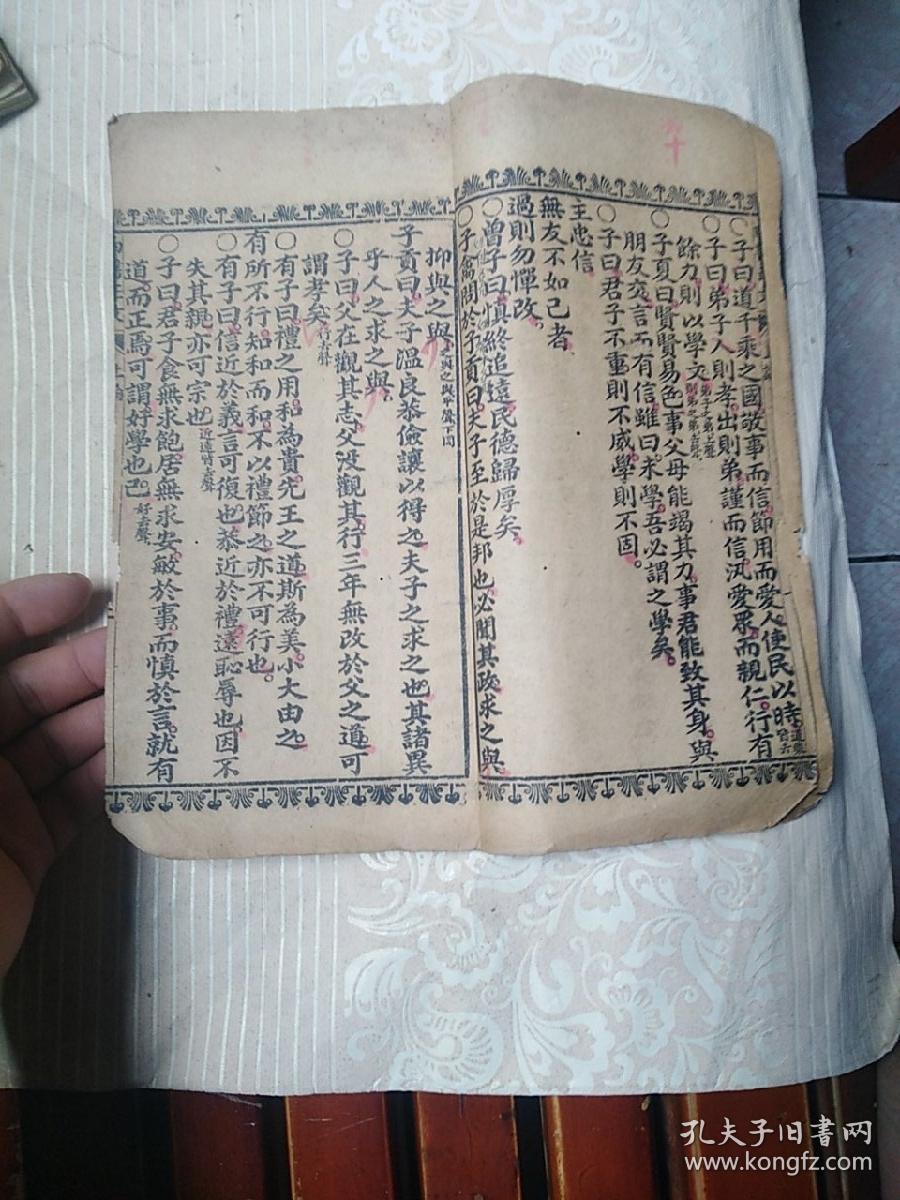 六十
○子曰道千乘之國敬事而信節用而愛人使民以時
○子曰弟子入則孝出則弟謹而信汎愛眾而親仁行有
餘力則以學文
○子夏曰賢賢易色事父母能竭其力事君能致其身與
朋友交言而有信雖曰未學吾必謂之學矣
○子曰君子不重則不威學則不固
主忠信
無友不如己者
過則勿憚改
○曾子曰慎終追遠民德歸厚矣
○子禽問於子貢曰夫子至於是邦也必聞其政求之與
抑與之與
子貢曰夫子溫良恭儉讓以得之夫子之求之也其諸異
乎人之求之與
○子曰父在觀其志父没觀其行三年無改於父之道可
謂孝矣
○有子曰禮之用和為貴先王之道斯為美小大由之
有所不行知和而和不以禮節之亦不可行也
○有子曰信近於義言可復也恭近於禮遠恥辱也因不
失其親亦可宗也 近遠皆去聲
○子曰君子食無求飽居無求安敏於事而慎於言就有
道而正焉可謂好學也已 好去聲
孔夫子旧书网
www.kongfz.com